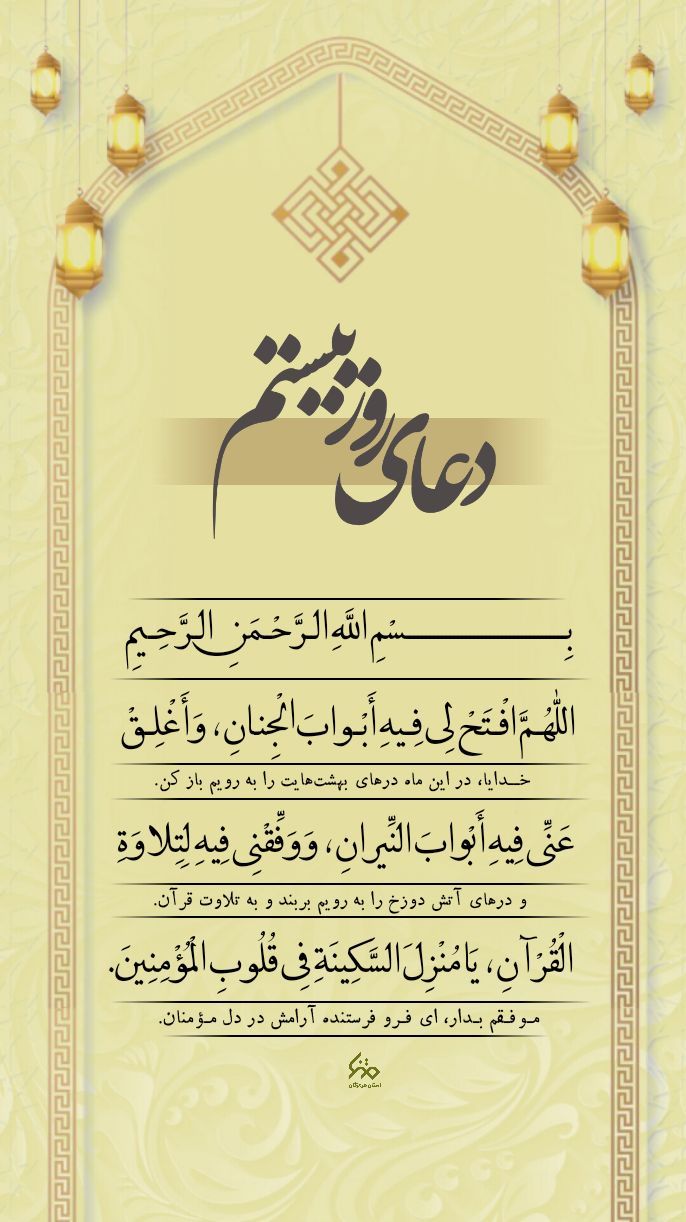 دعای روز بیستم
بِسْمِ اللَّهِ الرَّحْمَنِ الرَّحِيمِ
اللّٰهُمَّ افْتَحْ لِي فِيهِ أَبْوابَ الْجِنانِ، وَأَغْلِقْ
خدایا، در این ماه درهای بهشت‌هایت را به رویم باز کن.
عَنِّي فِيهِ أَبْوابَ النِّيرانِ، وَوَفِّقْنِي فِيهِ لِتِلاوَةِ
و درهای آتش دوزخ را به رویم بربند و به تلاوت قرآن.
الْقُرْآنِ، يَا مُنْزِلَ السَّكِينَةِ فِي قُلُوبِ الْمُؤْمِنِينَ.
موفقم بدار، ای فرو فرستنده آرامش در دل مؤمنان.